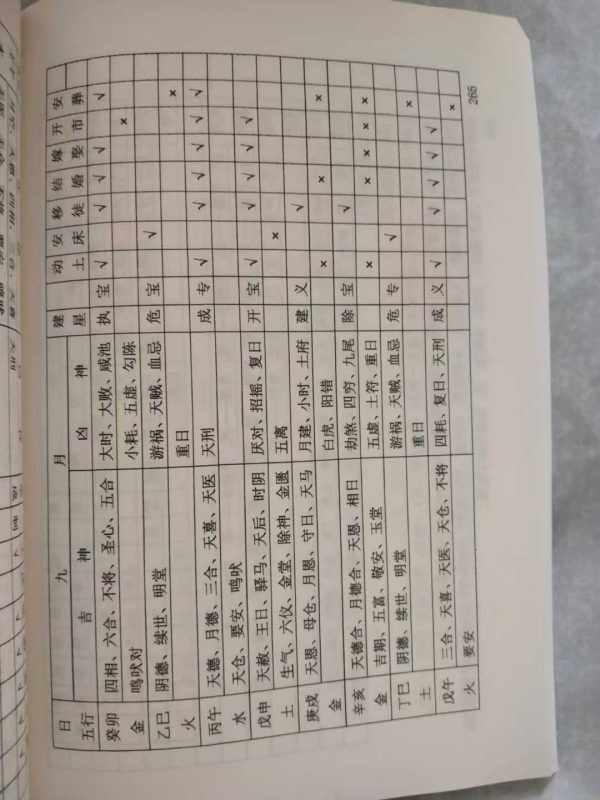 日 九月 建 动 安 移 结 嫁 开 安
五行 吉神 凶神 星 土 床 徒 婚 娶 市 葬
癸卯 四相、六合、不将、圣心、五合 大时、大败、咸池 执 宝 √ √ √ √ √
金 鸣吠对 小耗、五虚、勾陈 ×
乙巳 阴德、续世、明堂 游祸、天贼、血忌 危 宝 √
火 重日 ×
丙午 天德、月德、三合、天喜、天医 天刑 成 专 √ √ √ √ √ √
水 天仓、要安、鸣吠
戊申 天赦、王日、驿马、天后、时阴 厌对、招摇、复日 开 宝 √ √ √ √ √
土 生气、六仪、金堂、除神、金匮 五离 ×
庚戌 天恩、母仓、月恩、守日、天马 月建、小时、土府 建 义 √
金 白虎、阳错 × × ×
辛亥 天德合、月德合、天恩、相日 劫煞、四穷、九尾 除 宝 √
金 吉期、五富、敬安、玉堂 五虚、土符、重日 × × × × ×
丁巳 阴德、续世、明堂 游祸、天贼、血忌 危 专 √
土 重日 ×
戊午 三合、天喜、天医、天仓、不将 四耗、复日、天刑 成 义 √ √ √ √ √
火 要安 ×
265